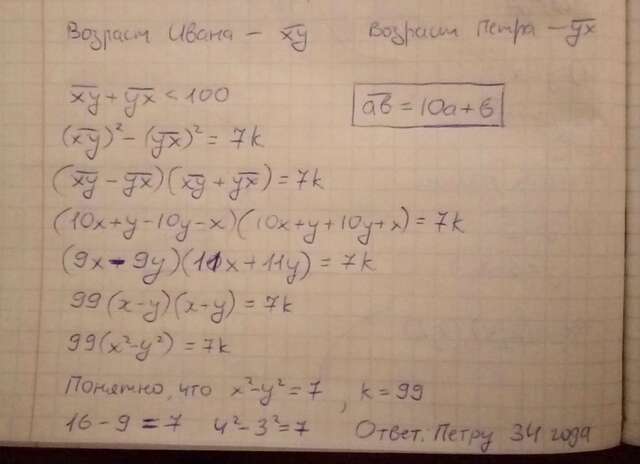 Возраст Ивана – x̅y̅ Возраст Петра – y̅x̅
x̅y̅ + y̅x̅ < 100 a̅b̅ = 10a + b
(x̅y̅)² – (y̅x̅)² = 7k
(x̅y̅ – y̅x̅)(x̅y̅ + y̅x̅) = 7k
(10x+y–10y–x)(10x+y+10y+x) = 7k
(9x – 9y)(11x + 11y) = 7k
99(x–y)(x–y) = 7k
99(x²–y²) = 7k
Понятно, что x²–y² = 7, k = 99
16 – 9 = 7 4²–3²=7 Ответ: Петру 34 года